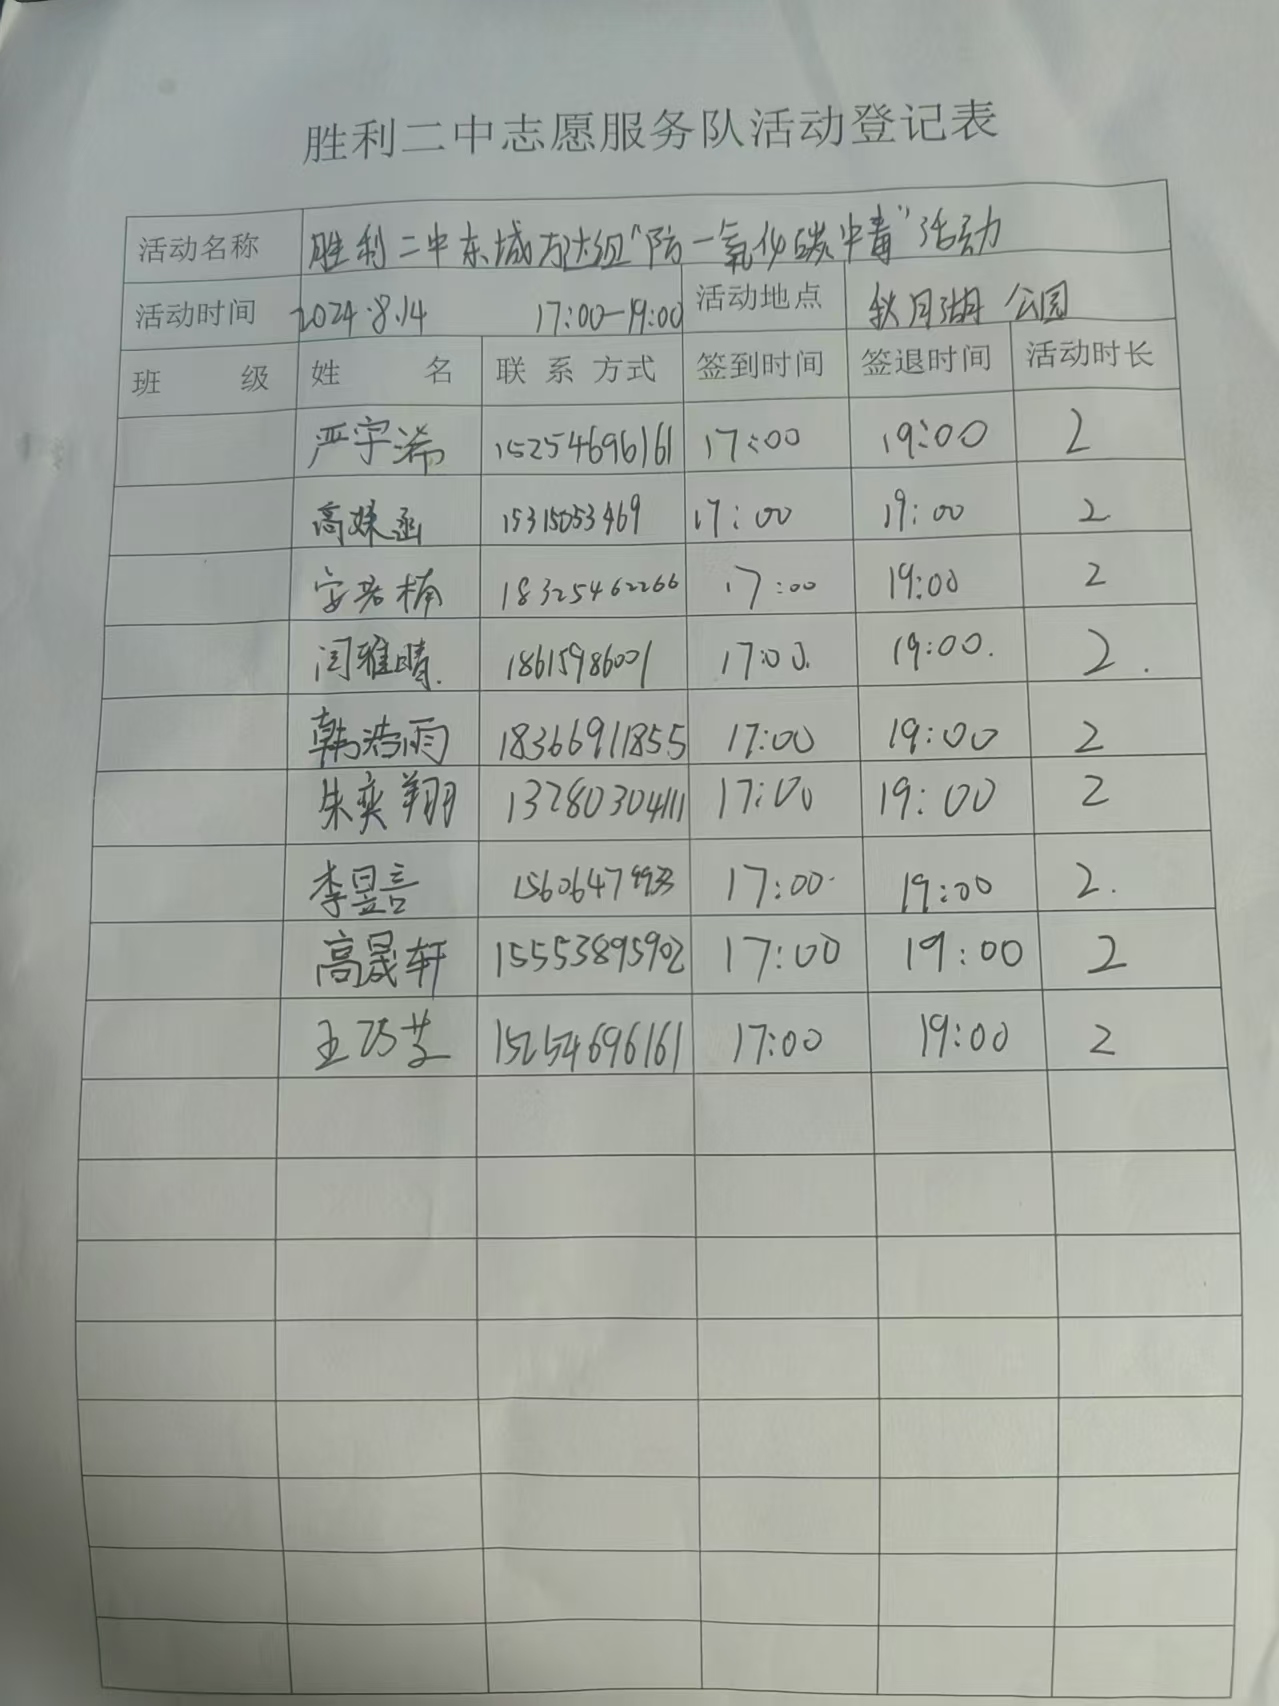 胜利二中志愿服务队活动登记表
活动名称 胜利二中东城万达组"防一氧化碳中毒"活动
活动时间 2024.8.14 17:00-19:00 活动地点 秋月湖公园
班 级 姓 名 联系方式 签到时间 签退时间 活动时长
严宇浠 15254696161 17:00 19:00 2
高姝函 15315053469 17:00 19:00 2
安若楠 18325462266 17:00 19:00 2
闫雅晴. 18615986001 17:00. 19:00. 2.
韩浩雨 18366911855 17:00 19:00 2
朱奕翔 13280304111 17:00 19:00 2
李昱言 15606479933 17:00. 19:00 2.
高晟轩 15553895902 17:00 19:00 2
王巧芝 15254696161 17:00 19:00 2